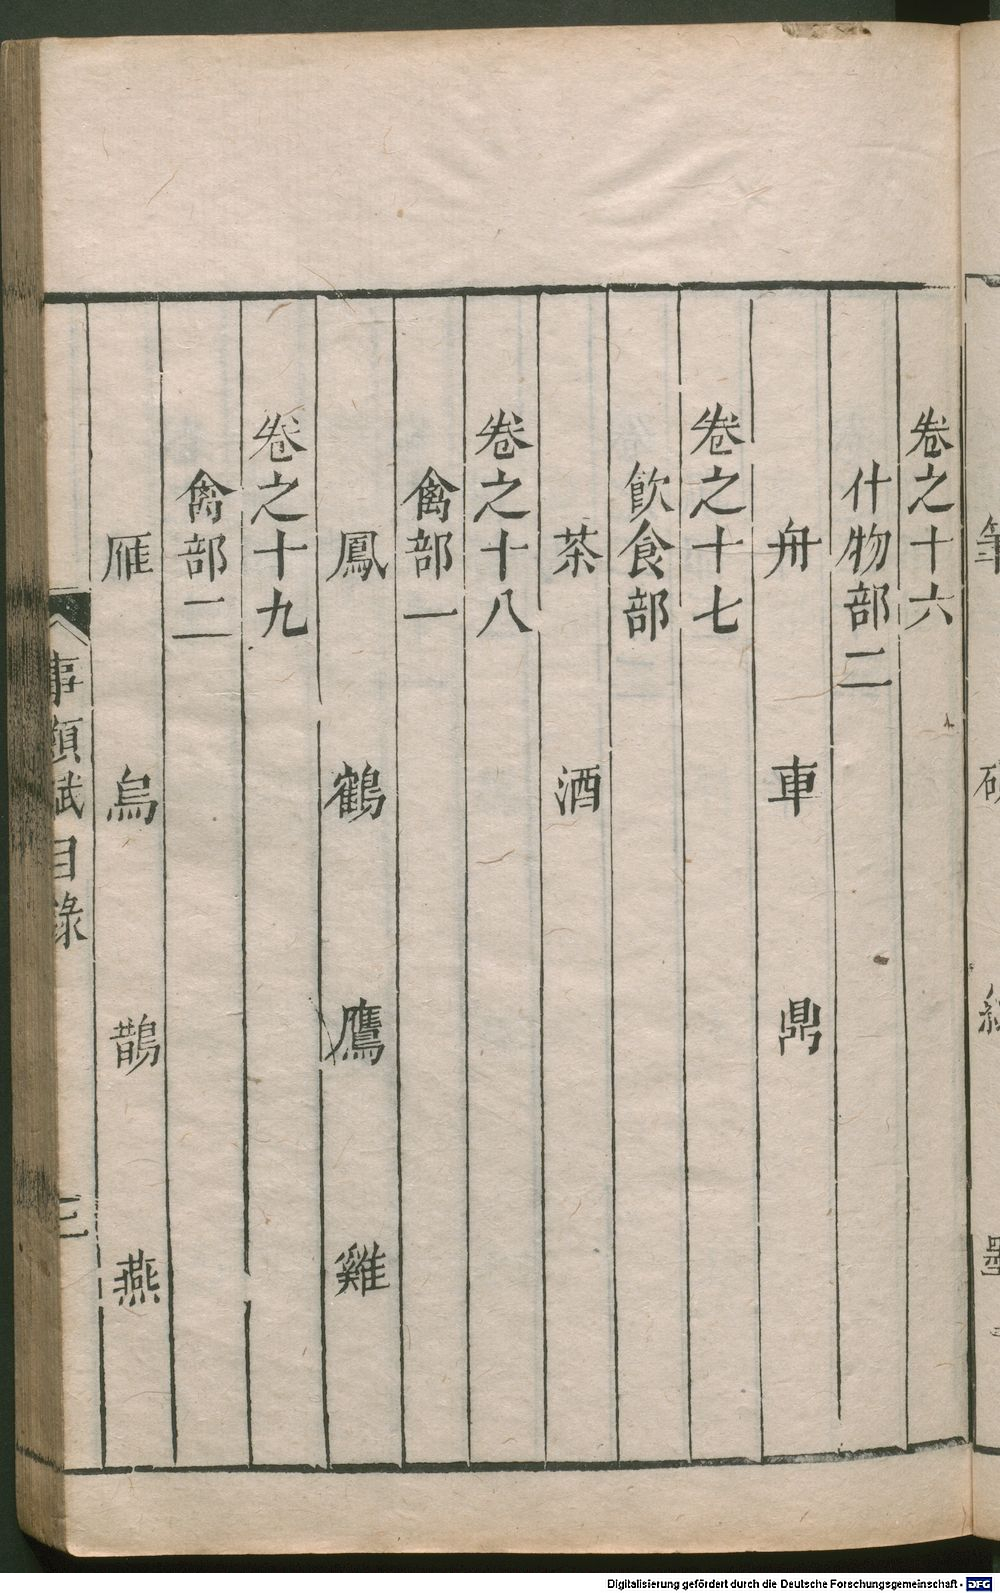 卷之十六
什物部二
舟 車 鼎
卷之十七
飲食部
茶 酒
卷之十八
禽部一
鳳 鶴 鷹 雞
卷之十九
禽部二
雁 烏 鵲 燕
事類賦目錄
三
Digitalisierung gefördert durch die Deutsche Forschungsgemeinschaft - DFG